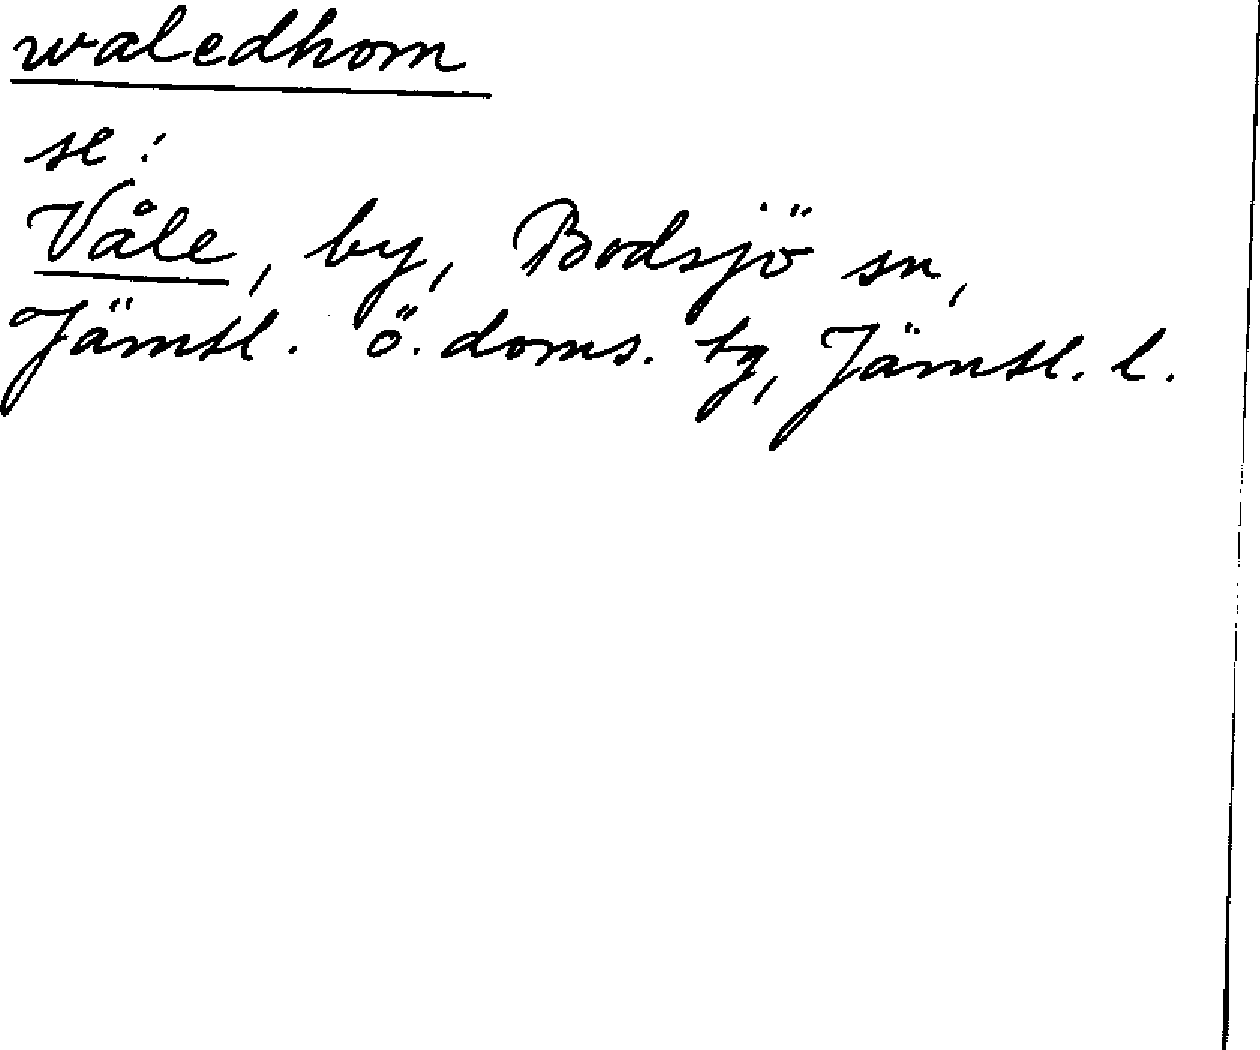 waledhom
se:
Våle, by, Bodsjö sn,
Jämtl. ö. doms. tg, Jämtl. l.